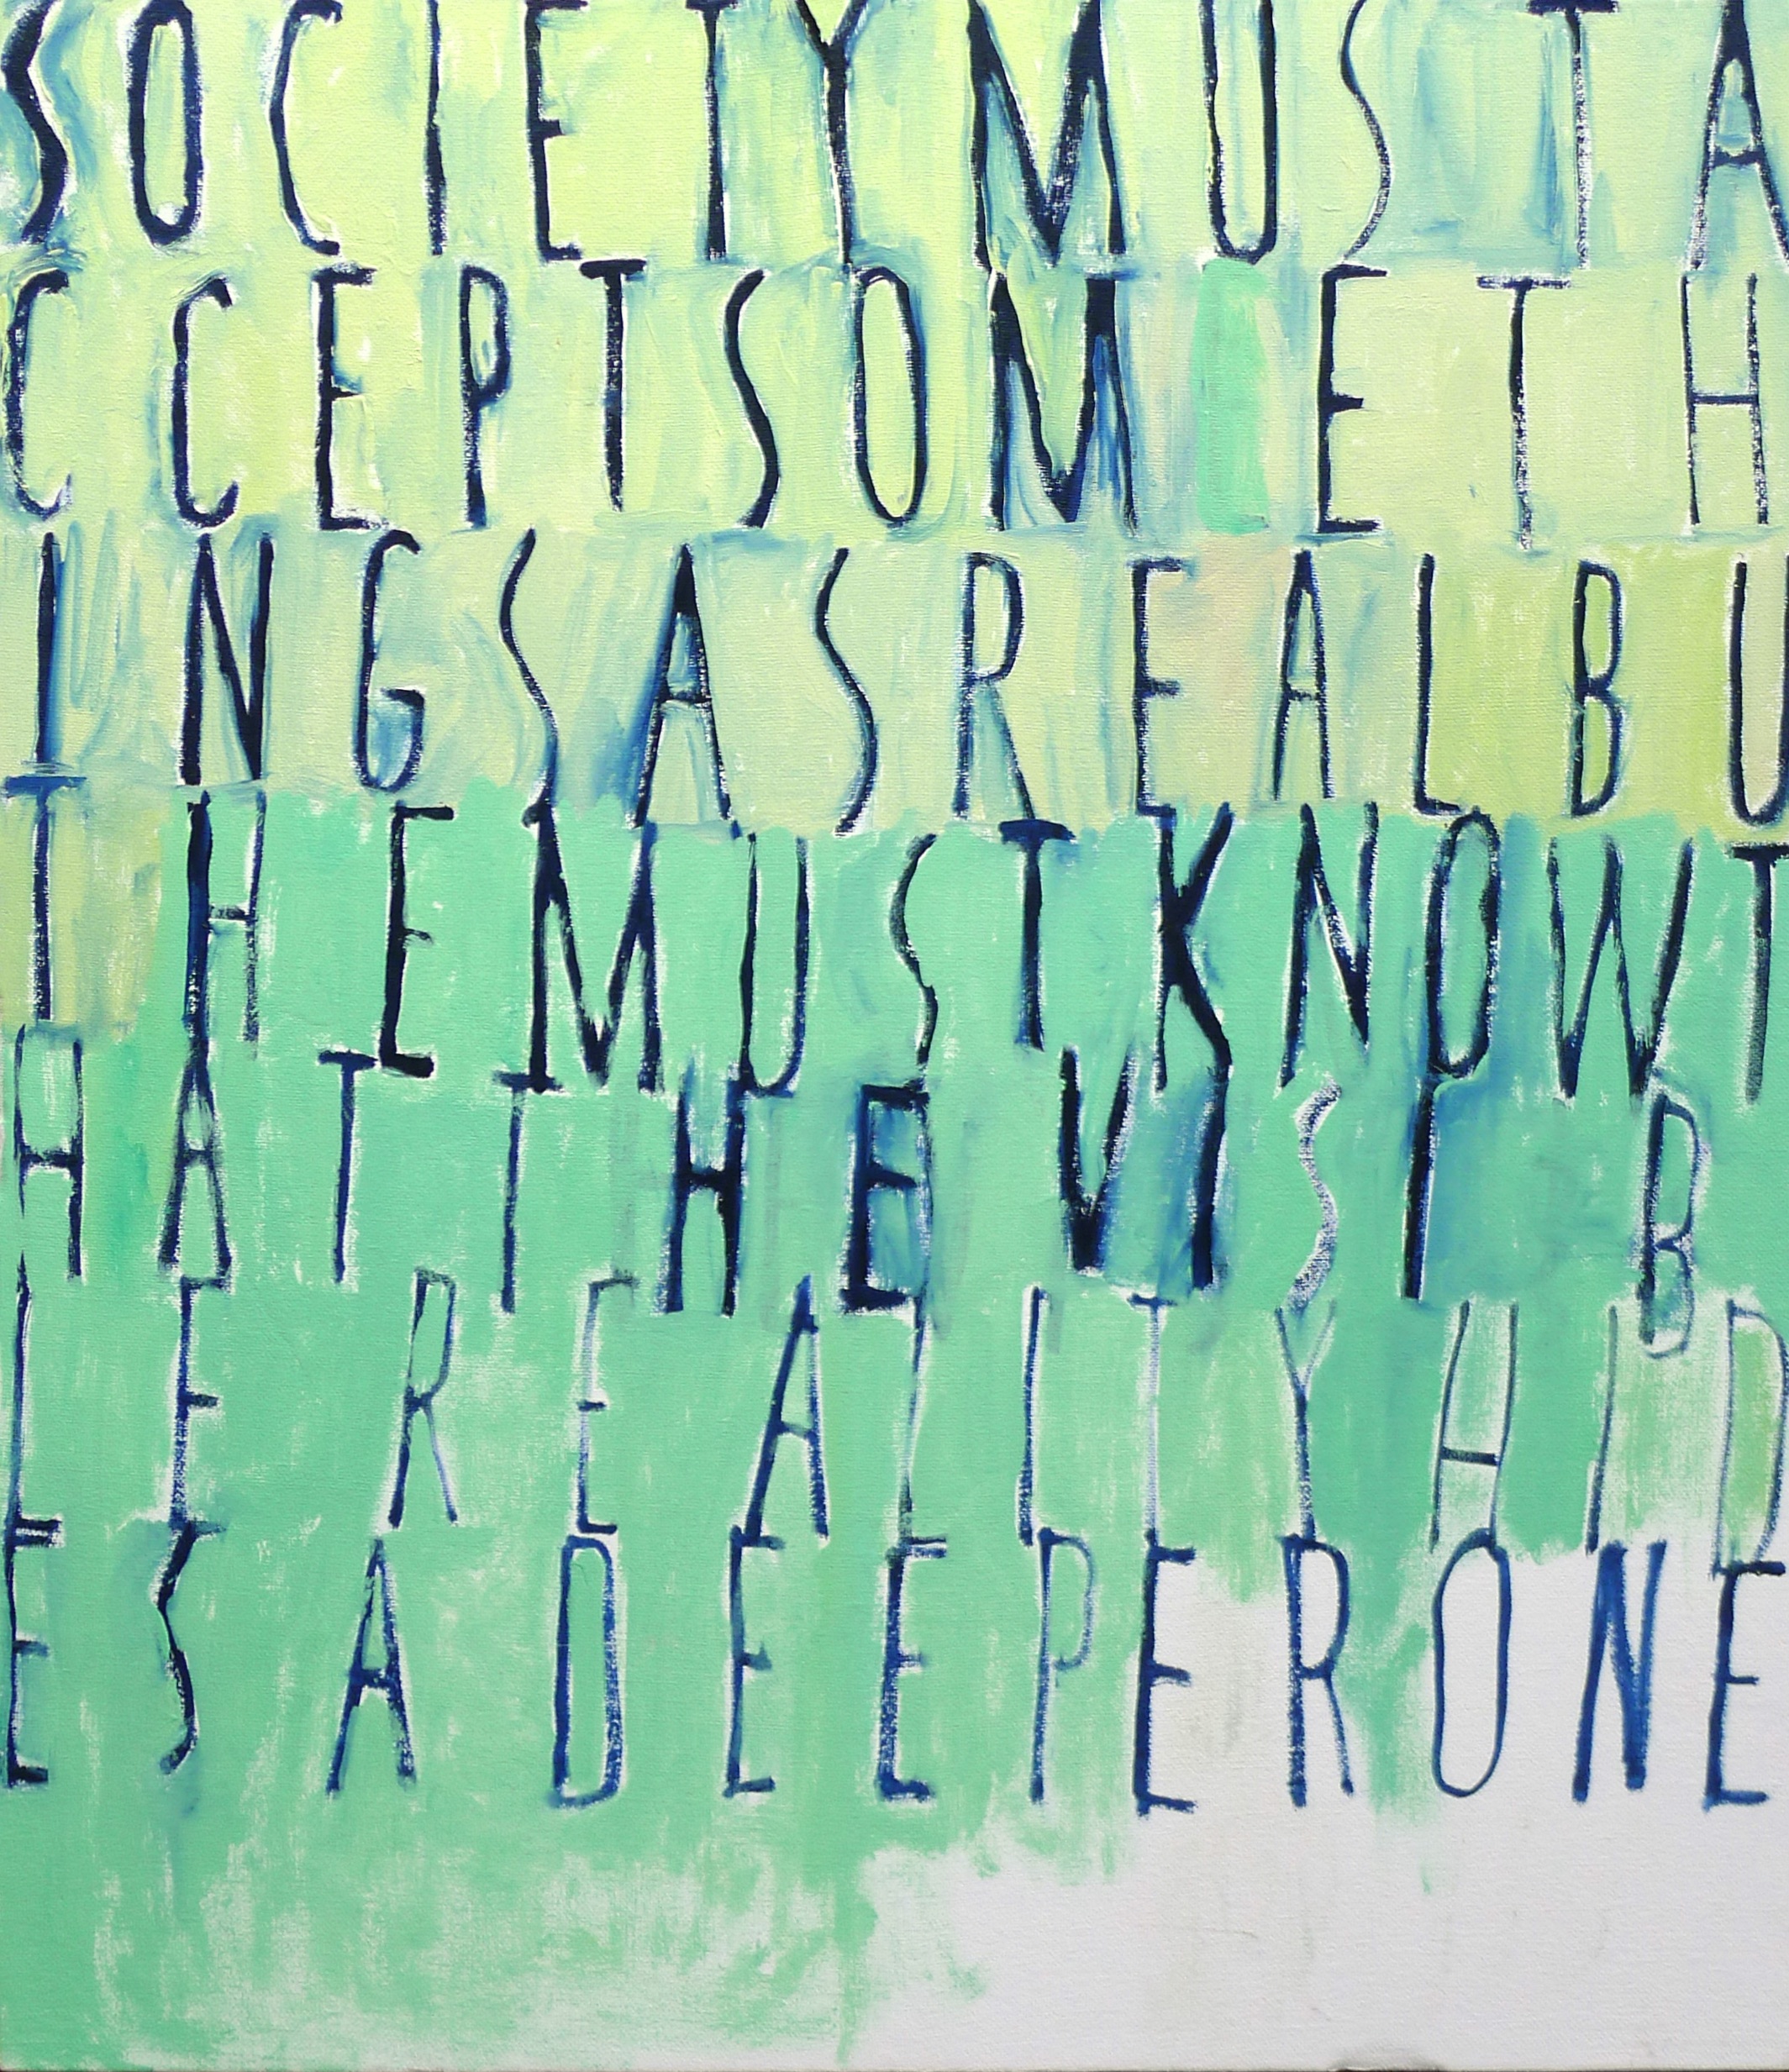 SOCIETYMUSTA
CCEPTSOM ETH
INGSASREALBU
THEMUSTKNOWT
HATTHEVISIB
LEREALITYHID
ESADEEPERONE